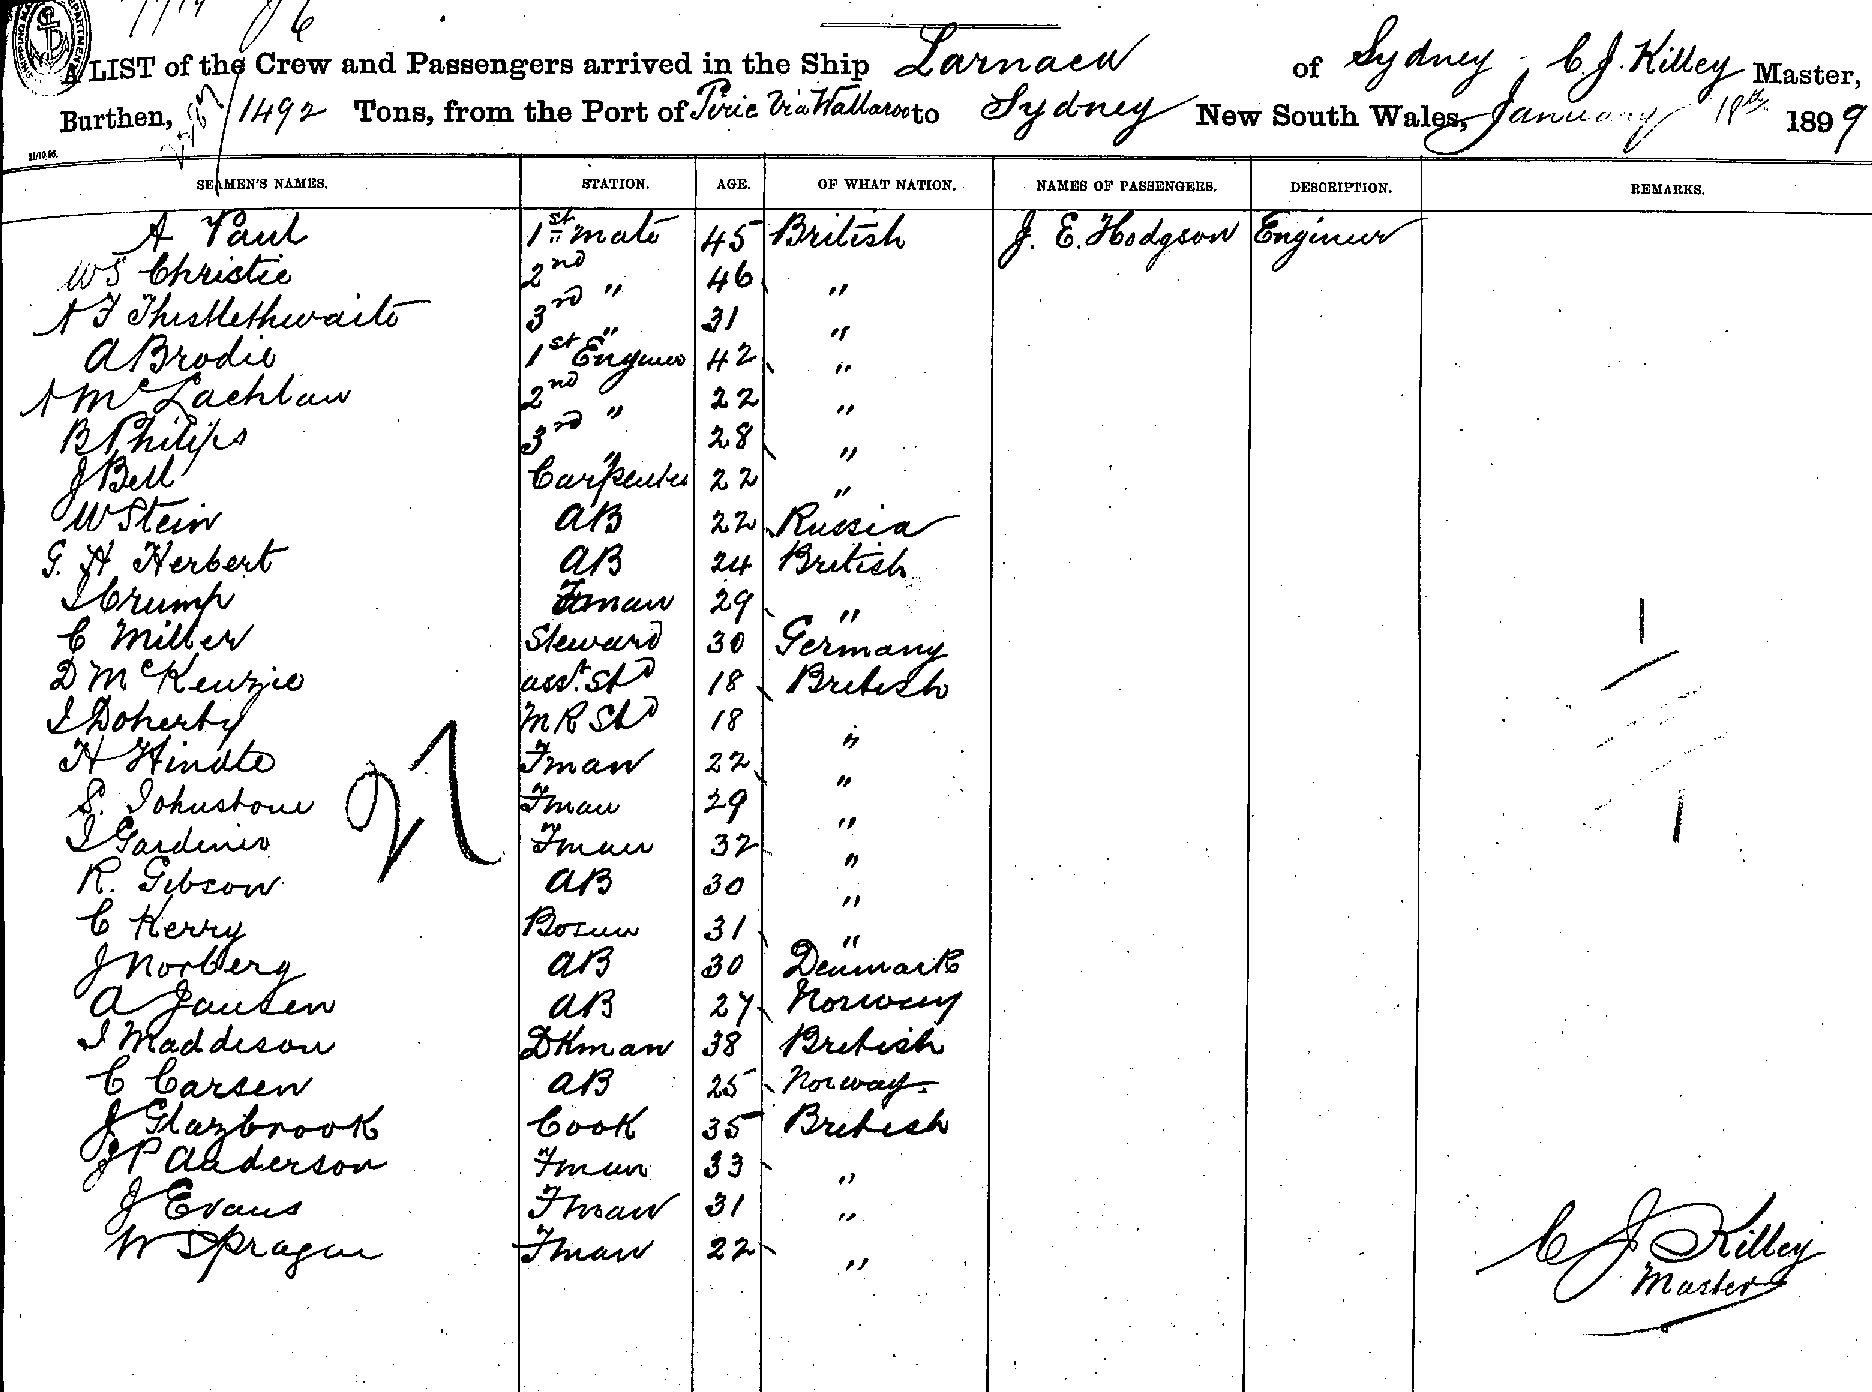 A LIST of the Crew and Passengers arrived in the Ship Larnaca of Sydney C J. Killey Master,
Burthen, 1492 Tons, from the Port of Pirie Via Wallaroo to Sydney New South Wales, January 18th 1899
SEAMEN'S NAMES. STATION. AGE. OF WHAT NATION. NAMES OF PASSENGERS. DESCRIPTION. REMARKS.
A Paul 1st mate 45 British J. E. Hodgson Engineer
WS Christie 2nd " 46 "
A F Thistlethwaite 3rd " 31 "
A Brodie 1st Engineer 42 "
A McLachlan 2nd " 22 "
B Philips 3rd " 28 "
J Bell Carpenter 22 "
W Stein AB 22 Russia
G. H Herbert AB 24 British
J Crump Fman 29 "
C Miller Steward 30 Germany
D McKenzie asst. Std 18 British
J Doherty M R Std 18 "
H Hindle Fman 22 "
S. Johnstone Fman 29 "
J Gardiner Fman 32 "
R. Gibson AB 30 "
C Kerry Bosun 31 "
J Norberg AB 30 Denmark
A Jansen AB 27 Norway
J Maddison DKman 38 British
C Carsen AB 25 Norway
J Glazbrook Cook 35 British
J P Anderson Fman 33 "
J Evans Fman 31 "
W Sprague Fman 22 "
27
C J Killey
Master